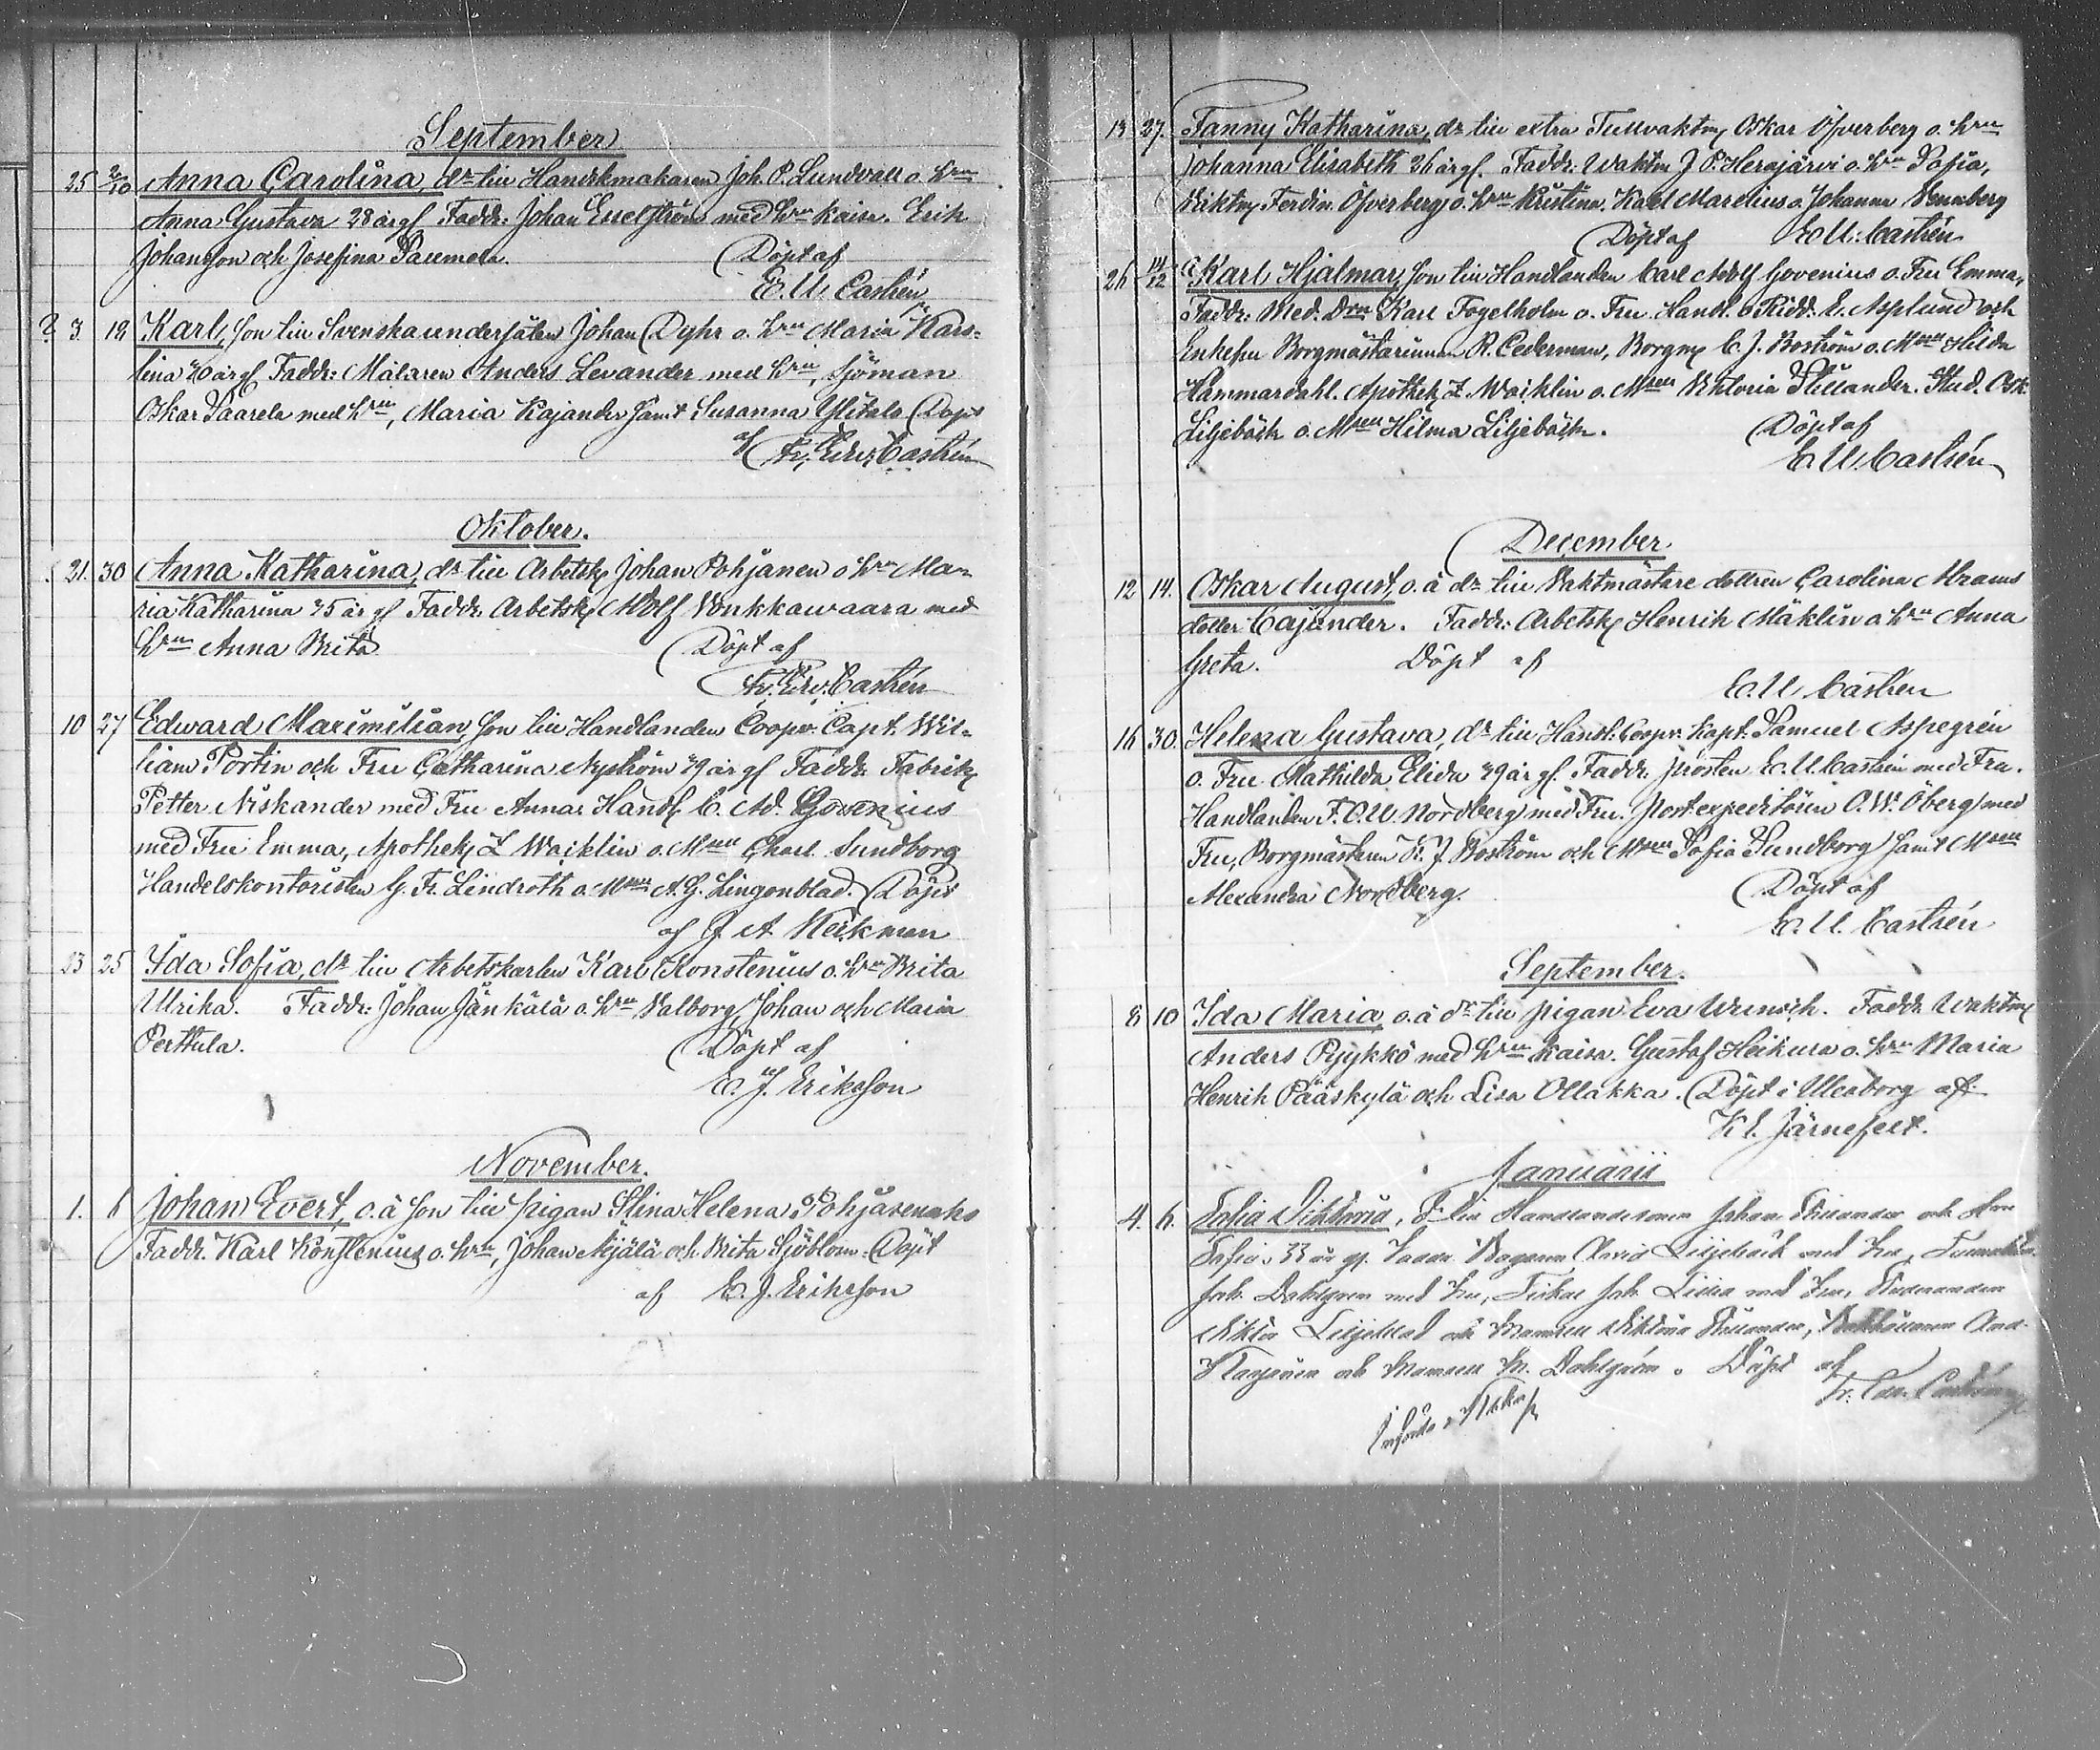 September
25 2/10 Anna Carolina, dr till Handskmakaren Joh. P. Lundvall o. hru
Anna Gustava 28 år gl. Faddr: Johan Esselström med hru Kaisa. Erik
Johansson och Josefina Paremela.
Döpt af
E. U. Castrén
? 3 19 Karl, son till Svenska undersåten Johan Dyhr o. hru Maria Karo-
lina 20 år gl. Faddr: Målaren Anders Levander med hru, Sjöman
Oskar Saarela med hru, Maria Kajander samt Susanna Ylitalo Döpt
af Fr. Edv. Castrén
Oktober.
21. 30 Anna Katharina, dr till Arbetsk. Johan Pohjanen o hru Ma-
ria Katharina 25 år gl Faddr. Arbetsk. Adolf Vonkkawaara med
hru Anna Brita
Döpt af
Fr. Edv. Castrén
10 27 Edward Maximilian, son till Handlanden Coopv. Capt. Wil-
liam Portin och Fru Catharina Nyström 29 år gl Faddr. Fabrik.
Petter Niskander med Fru Anna. Handl. C. Ad. Govenius
med Fru Emma, Apothek. Z Wacklin o. Msell Charl. Sundborg
Handelskontoristen G. Fr. Lindroth o. Msell A. G. Lingonblad. Döpt
af J. A. Heikman
23 25 Ida Sofia, dr till Arbetskarlen Karl Konstenius o. hru Brita
Ulrika. Faddr: Johan Jänkälä o. hru Valborg, Johan och Maria
Perttula.
Döpt af
E. J. Eriksson
November.
1. 6 Johan Evert, o.ä son till pigan Stina Helena Pohjasenaho
Faddr. Karl Konstenius o. hru, Johan Nyälä och Brita Sjöblom. Döpt
af E. J. Eriksson
13 27. Fanny Katharina, dr till extra Tullvaktm. Oskar Öfverberg o. hru
Johanna Elisabeth 26 år gl. Faddr: Waktm J. P. Herajärvi o. hru Sofia,
Ferdin. Öfverberg o. hru Kristina. Karl Marelius o. Johanna Wennberg
Döpt af E. U. Castrén
26 11/12 Karl Hjalmar, son till Handlanden Carl Adolf Govenius o. Fru Emma,
Faddr: Med. Drn Karl Fogelholm o. Fru Handl. o Ridd. E. Asplund och
Enkefru Borgmästarinnan R. Cederman, Borgm. C. J. Boström o. Msell Hilda
Hammardahl. Apothek. Z. Wacklin o. Msell Viktoria Stillander. Stud. Osk.
Liljebäck o. Msell Hilma Liljebäck.
Döpt af
E. U. Castrén
December
12 14. Oskar August, o.ä dr till Vaktmästare dottren Carolina Abrams
dotter Cajander. Faddr: Arbetsk. Henrik Mäklin o hru Anna
Greta. Döpt af
E. U. Castrén
16 30. Helena Gustava, dr till Handl. Coopv. Kapt. Samuel Aspegrén
o. Fru Mathilda Elida 29 år gl. Faddr. prosten E. U. Castrén med Fru.
Handlanden F. O. U. Nordberg med Fru. postexpeditören O. W. Öberg med
Fru, Borgmästaren K. J. Boström och Msell Sofia Sundborg samt Msell
Alexandra Nordberg.
Döpt af
E. U. Castrén
September.
8 10 Ida Maria, o.ä dr till pigan Eva Wrensch. Faddr. Waktm
Anders Pyykkö med hru Kaisa. Gustaf Heikura o. hru Maria
Henrik Pääskylä och Lisa Ollakka. Döpt i Uleaborg af
K. E. Järnefelt.
Januarii
4. 6. Sofia Viktoria, dr till Johan och Hru
Sofia, 33 år gl. David Liljebäck med Fru,
Joh. Dahlgren med Fru, Joh. med Fru, Studeranden
Viktor Liljeblad och Mamsell Viktoria And.
och Mamsell M. Dahlgrén. Döpt af